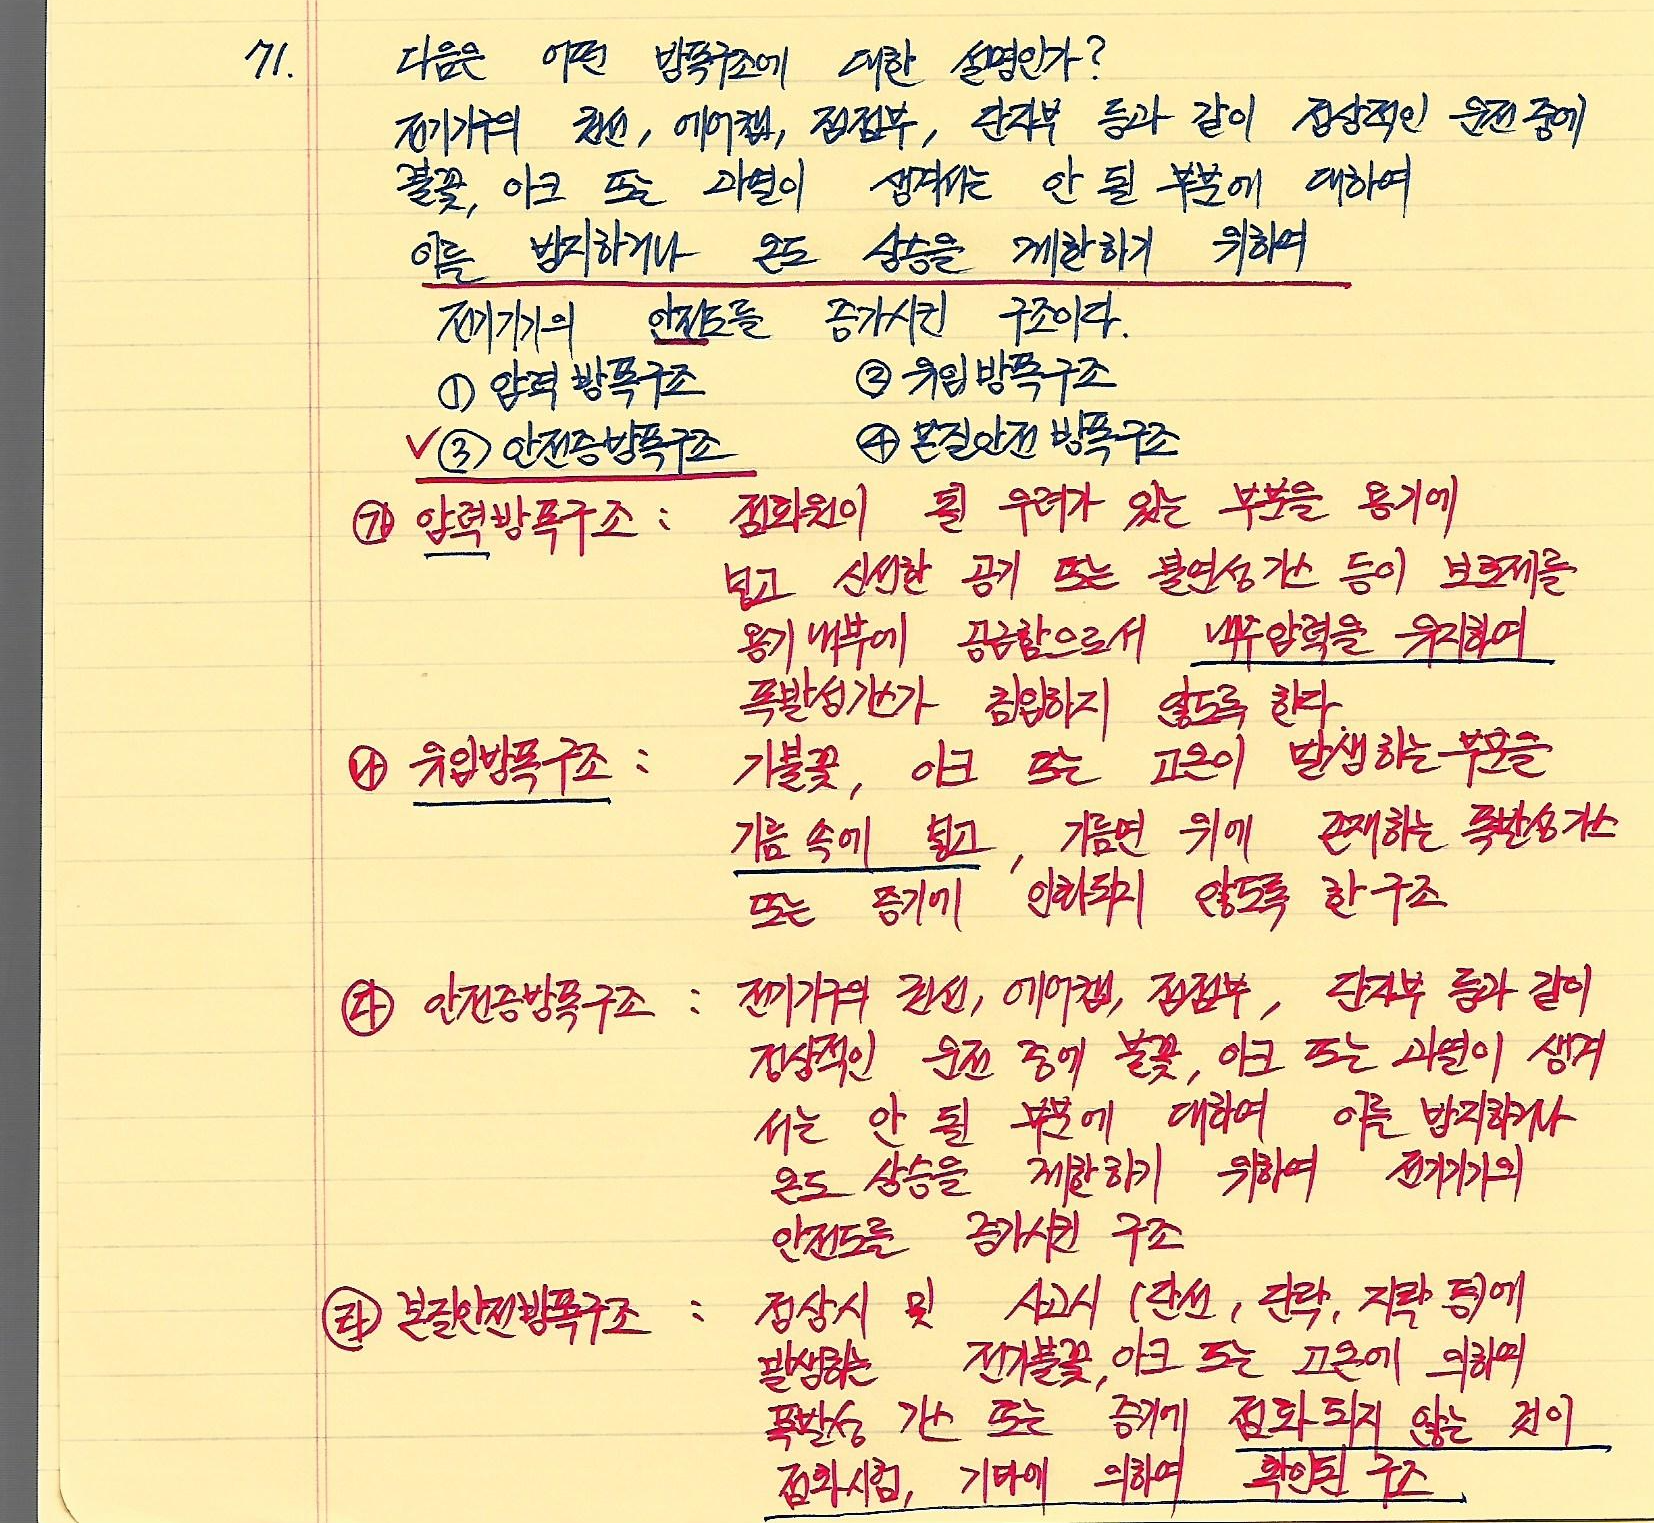 71. 다음은 어떤 방폭구조에 대한 설명인가?
전기기구의 권선, 에어캡, 접점부, 단자부 등과 같이 정상적인 운전중에
불꽃, 아크 또는 과열이 생겨서는 안 될 부분에 대하여
이를 방지하거나 온도 상승을 제한하기 위하여
전기기기의 안전도를 증가시킨 구조이다.
① 압력방폭구조 ② 유입방폭구조
✓③ 안전증방폭구조 ④ 본질안전 방폭구조
㉮ 압력방폭구조 : 점화원이 될 우려가 있는 부분을 용기에
넣고 신선한 공기 또는 불연성가스 등이 보호제를
용기내부에 공급함으로서 내부압력을 유지하여
폭발성가스가 침입하지 않도록 한다.
㉯ 유입방폭구조 : 기불꽃, 아크 또는 고온이 발생하는부분을
기름 속에 넣고, 기름면 위에 존재하는 폭발성가스
또는 증기에 인화되지 않도록 한구조
㉰ 안전증방폭구조 : 전기기구의 권선, 에어캡, 접점부, 단자부 등과 같이
정상적인 운전 중에 불꽃, 아크 또는 과열이 생겨
서는 안 될 부분에 대하여 이를 방지하거나
온도 상승을 제한하기 위하여 전기기기의
안전도를 증가시킨 구조
㉱ 본질안전방폭구조 : 정상시 및 사고시 (단선, 단락, 지락 등)에
발생하는 전기불꽃, 아크 또는 고온에 의하여
폭발성 가스 또는 증기에 점화되지 않는 것이
점화시험, 기타에 의하여 확인된 구조